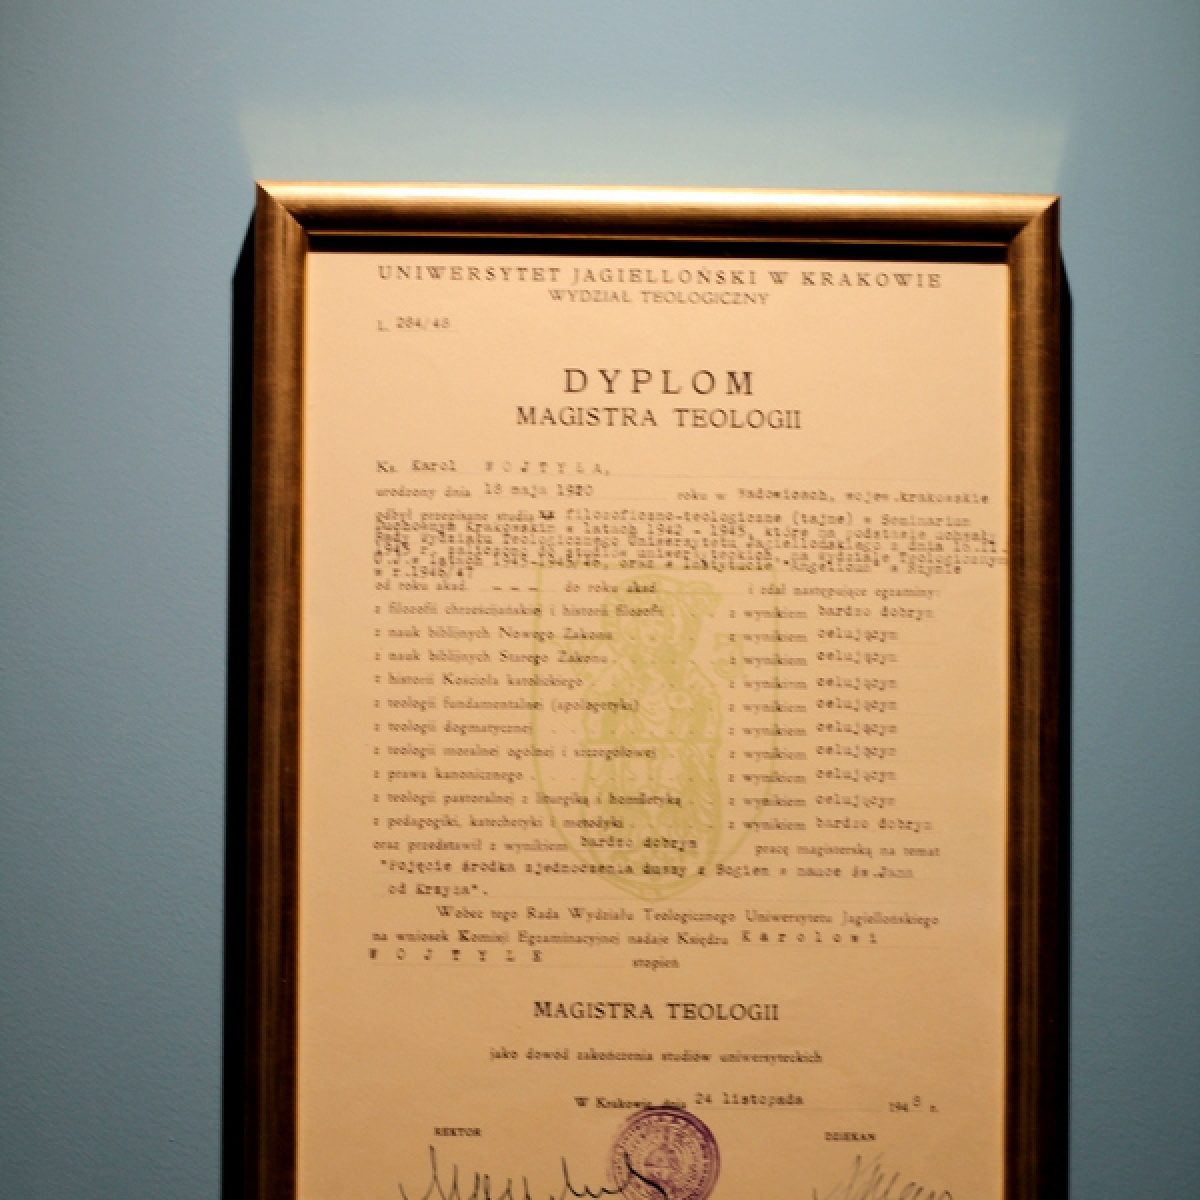 UNIWERSYTET JAGIELLOŃSKI W KRAKOWIE
WYDZIAŁ TEOLOGICZNY
L. 284/48
DYPLOM
MAGISTRA TEOLOGII
Ks. Karol WOJTYŁA,
urodzony dnia 18 maja 1920 roku w Wadowicach, wojew.krakowskie
odbył przepisane studia filozoficzno-teologiczne (tajne) w Seminarium
Duchownym Krakowskim w latach 1942 - 1945, które na podstawie uchwały
Rady Wydziału Teologicznego Uniwersytetu Jagiellońskiego z dnia
1945 r. zaliczono do studiów uniwersyteckich, na wydziale Teologicznym
U.J.w latach 1945-1945/46, oraz w Instytucie "Angelicum" w Rzymie
w r.1946/47
od roku akad. - - - do roku akad. i zdał następujące egzaminy:
z filozofii chrześcijańskiej i historii filozofii z wynikiem bardzo dobrym
z nauk biblijnych Nowego Zakonu z wynikiem celującym
z nauk biblijnych Starego Zakonu z wynikiem celującym
z historii Kościoła katolickiego z wynikiem celującym
z teologii fundamentalnej (apologetyki) z wynikiem celującym
z teologii dogmatycznej z wynikiem celującym
z teologii moralnej ogólnej i szczegółowej z wynikiem celującym
z prawa kanonicznego z wynikiem celującym
z teologii pastoralnej z liturgiką i homiletyką z wynikiem celującym
z pedagogiki, katechetyki i metodyki z wynikiem bardzo dobrym
oraz przedstawił z wynikiem bardzo dobrym pracę magisterską na temat
"Pojęcie środka zjednoczenia duszy z Bogiem w nauce św.Jana
od Krzyża".
Wobec tego Rada Wydziału Teologicznego Uniwersytetu Jagiellońskiego
na wniosek Komisji Egzaminacyjnej nadaje Księdzu Karolowi
WOJTYLE stopień
MAGISTRA TEOLOGII
jako dowód zakończenia studiów uniwersyteckich
W Krakowie, dnia 24 listopada 1948 r.
REKTOR DZIEKAN